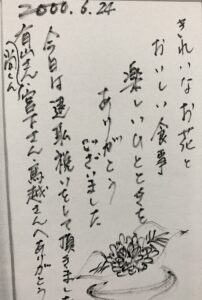 2000.6.24
きれいなお花と
おいしい食事
楽しいひとときを
ありがとう
ございました
今日は退職祝いをして頂きました
有山さん、宮下さん、鳥越さんへありがとう